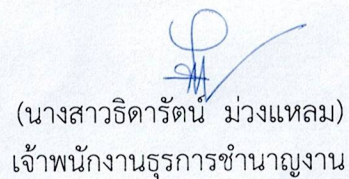 (นางสาวธิดารัตน์ ม่วงแหลม)
เจ้าพนักงานธุรการชำนาญงาน